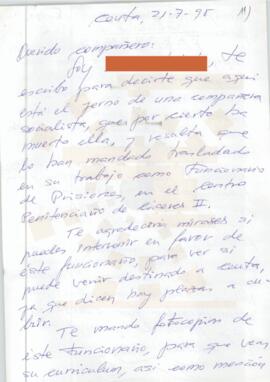 Ceuta, 21-7-95
11)
Querido compañero:
Soy , te
escribo para decirte que aquí
está el yerno de una compañera
socialista, que por cierto ha
muerto ella, y resulta que
lo han mandado trasladado
en su trabajo como funcionario
de Prisiones, en el Centro
Penitenciario de Cáceres II.
Te agradecería mirases si
puedes intervenir en favor de
éste funcionario, para ver si
puede venir destinado a Ceuta,
ya que dicen hay plazas a cu-
brir.
Te mando fotocopias de
éste funcionario, para que veas
su curriculum, así como